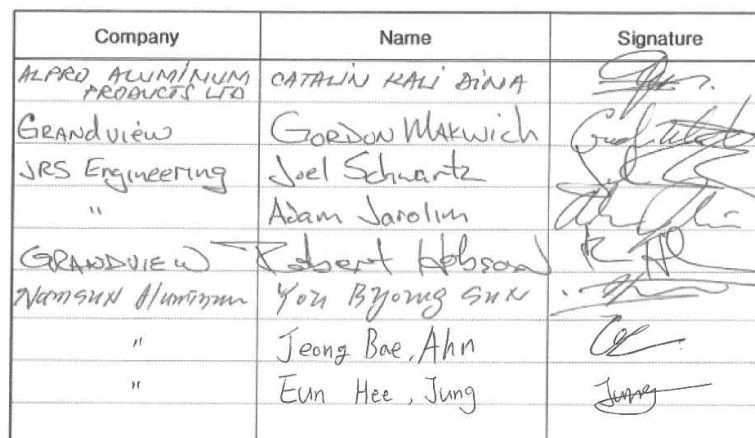 Company Name Signature
ALPRO ALUMINUM CATALIN KALI DINA
PRODUCTS LTD
GRANDVIEW GORDON MAKWICH
JRS Engineering Joel Schwartz
" Adam Jarolim
GRANDVIEW Robert Hobson
Namsun Aluminum You Byoung Sun
" Jeong Bae, Ahn
" Eun Hee, Jung Jung